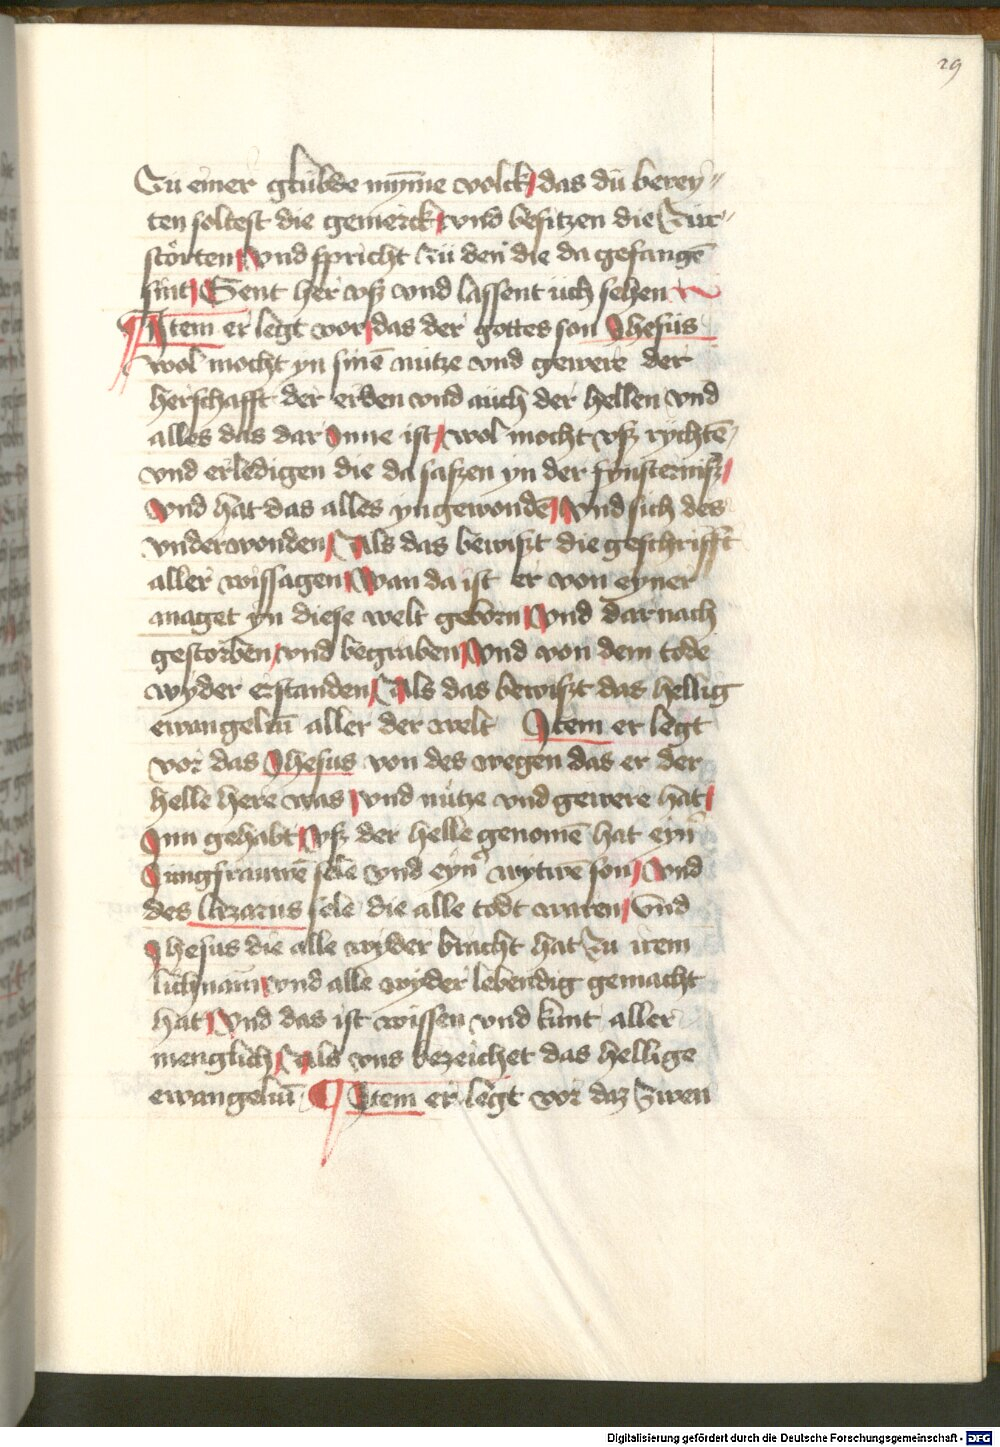 29
Zü einer glübde mȳme volck / das dü berey„
ten soltest die gemerck / vnd besitzen die Zür„
störten / Vnd spricht Zü den die da gefangē
sint / Gent her vß vnd lassent üch sehen
Item er legt vor / das der gottes son Jhesüs
wol mocht yn sinē nütze vnd gewere der
herschafft der erden vnd aüch der hellen vnd
alles das dar Jnne ist / wol mocht vß rychtē /
vnd erledigen die da saſzen yn der fynsterniſz /
Vnd hat das alles yngewondē / Vnd sich des
vnderwonden / Als das bewiſzt die geschrifft
aller wissagen / Wan da ist er von eyner
maget yn diese welt geborn / Vnd dar nach
gestorben / vnd begraben / Vnd von dem tode
wyder erstanden / Als das bewiſzt das hellig
ewangeliū aller der welt Item er legt
vor das Jhesus von des wegen das er der
helle here was / vnd nütze vnd gewere hat /
Jnn gehabt / Vß der helle genomē hat eyn̄
Jungfrauwē sele vnd eyn̄ wytwē son / Vnd
des lazarus sele die alle todt waren / Vnd
Jhesus die alle wyder bracht hat Zu irem
lichnam / vnd alle wyder lebendig gemacht
hat / Vnd das ist wissen vnd kunt aller
menglich / Als vns bezeichet das hellige
ewangeliū / Item er legt vor daz Zwen
Digitalisierung gefördert durch die Deutsche Forschungsgemeinschaft - DFG